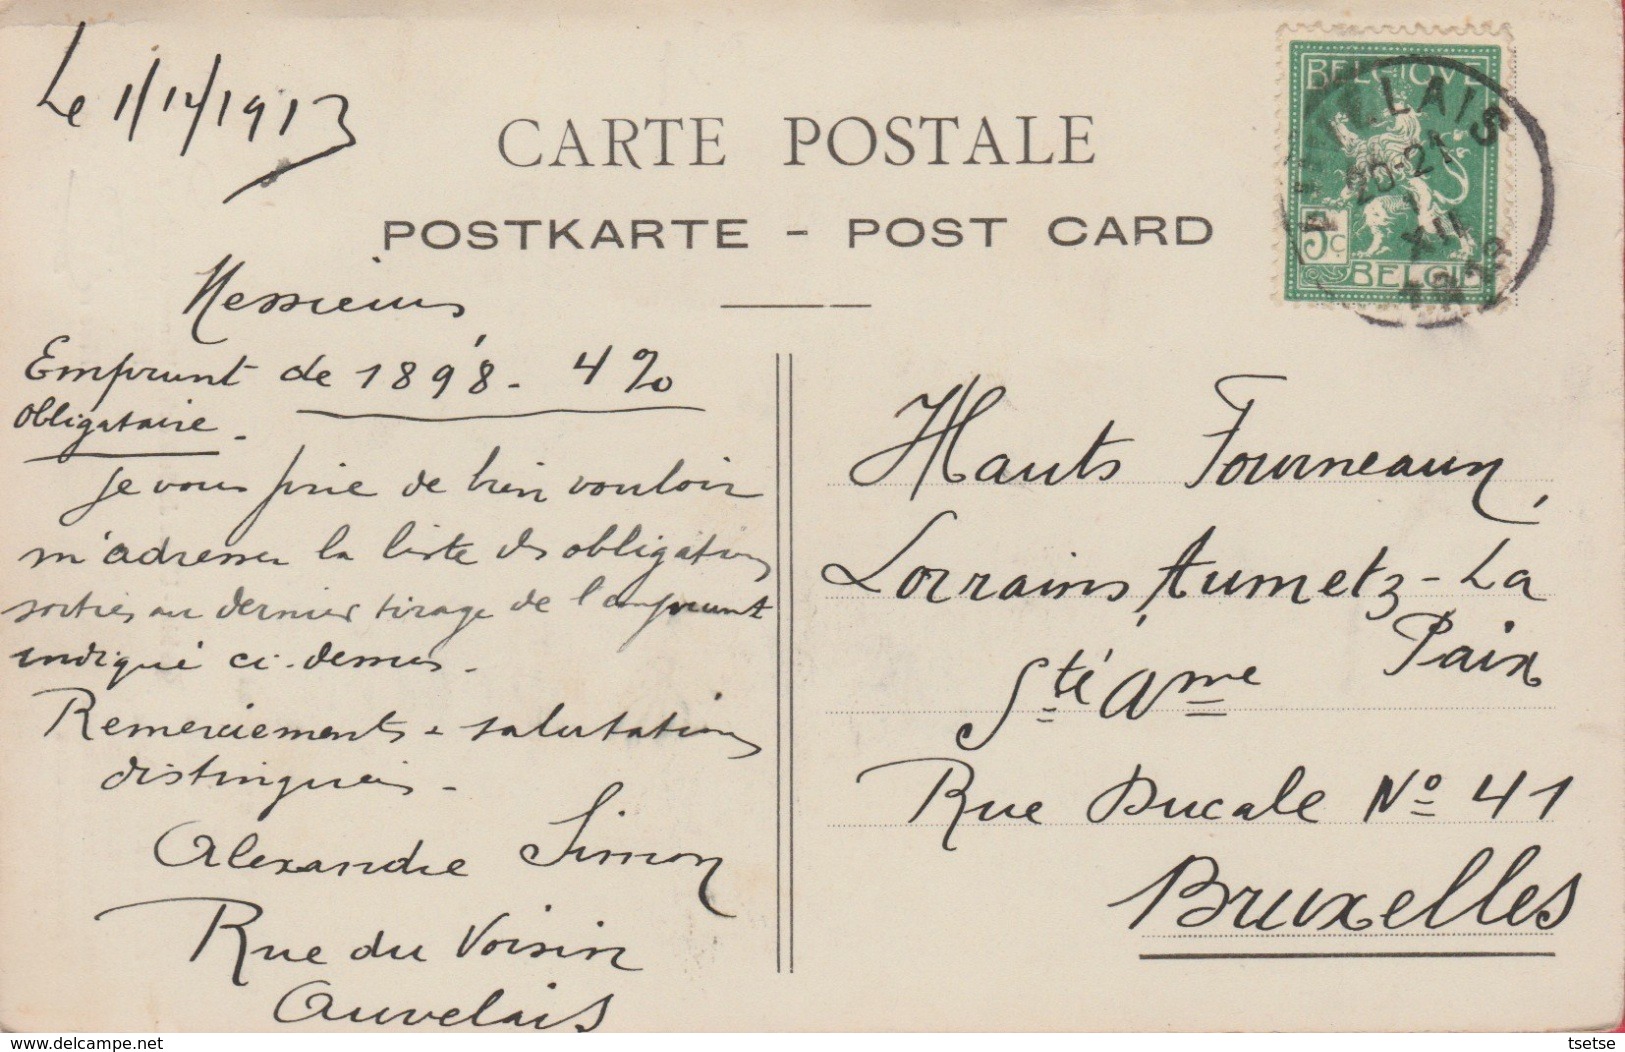 Le 1/12/1913
CARTE POSTALE
POSTKARTE - POST CARD
BELGIQUE
5c
BELGIË
AUVELAIS
20-21
XII
Messieurs
Emprunt de 1898 - 4 %
obligataire -
je vous prie de bien vouloir
m'adresser la liste des obligations
sorties au dernier tirage de l'emprunt
indiqué ci-dessus -
Remerciements & salutations
distinguées -
Alexandre Simon
Rue du Voisin
Auvelais
Hauts Fourneaux,
Lorrains, Aumetz - La
Paix
Sté Ame
Rue Ducale No 41
Bruxelles
delcampe.net
tsetse